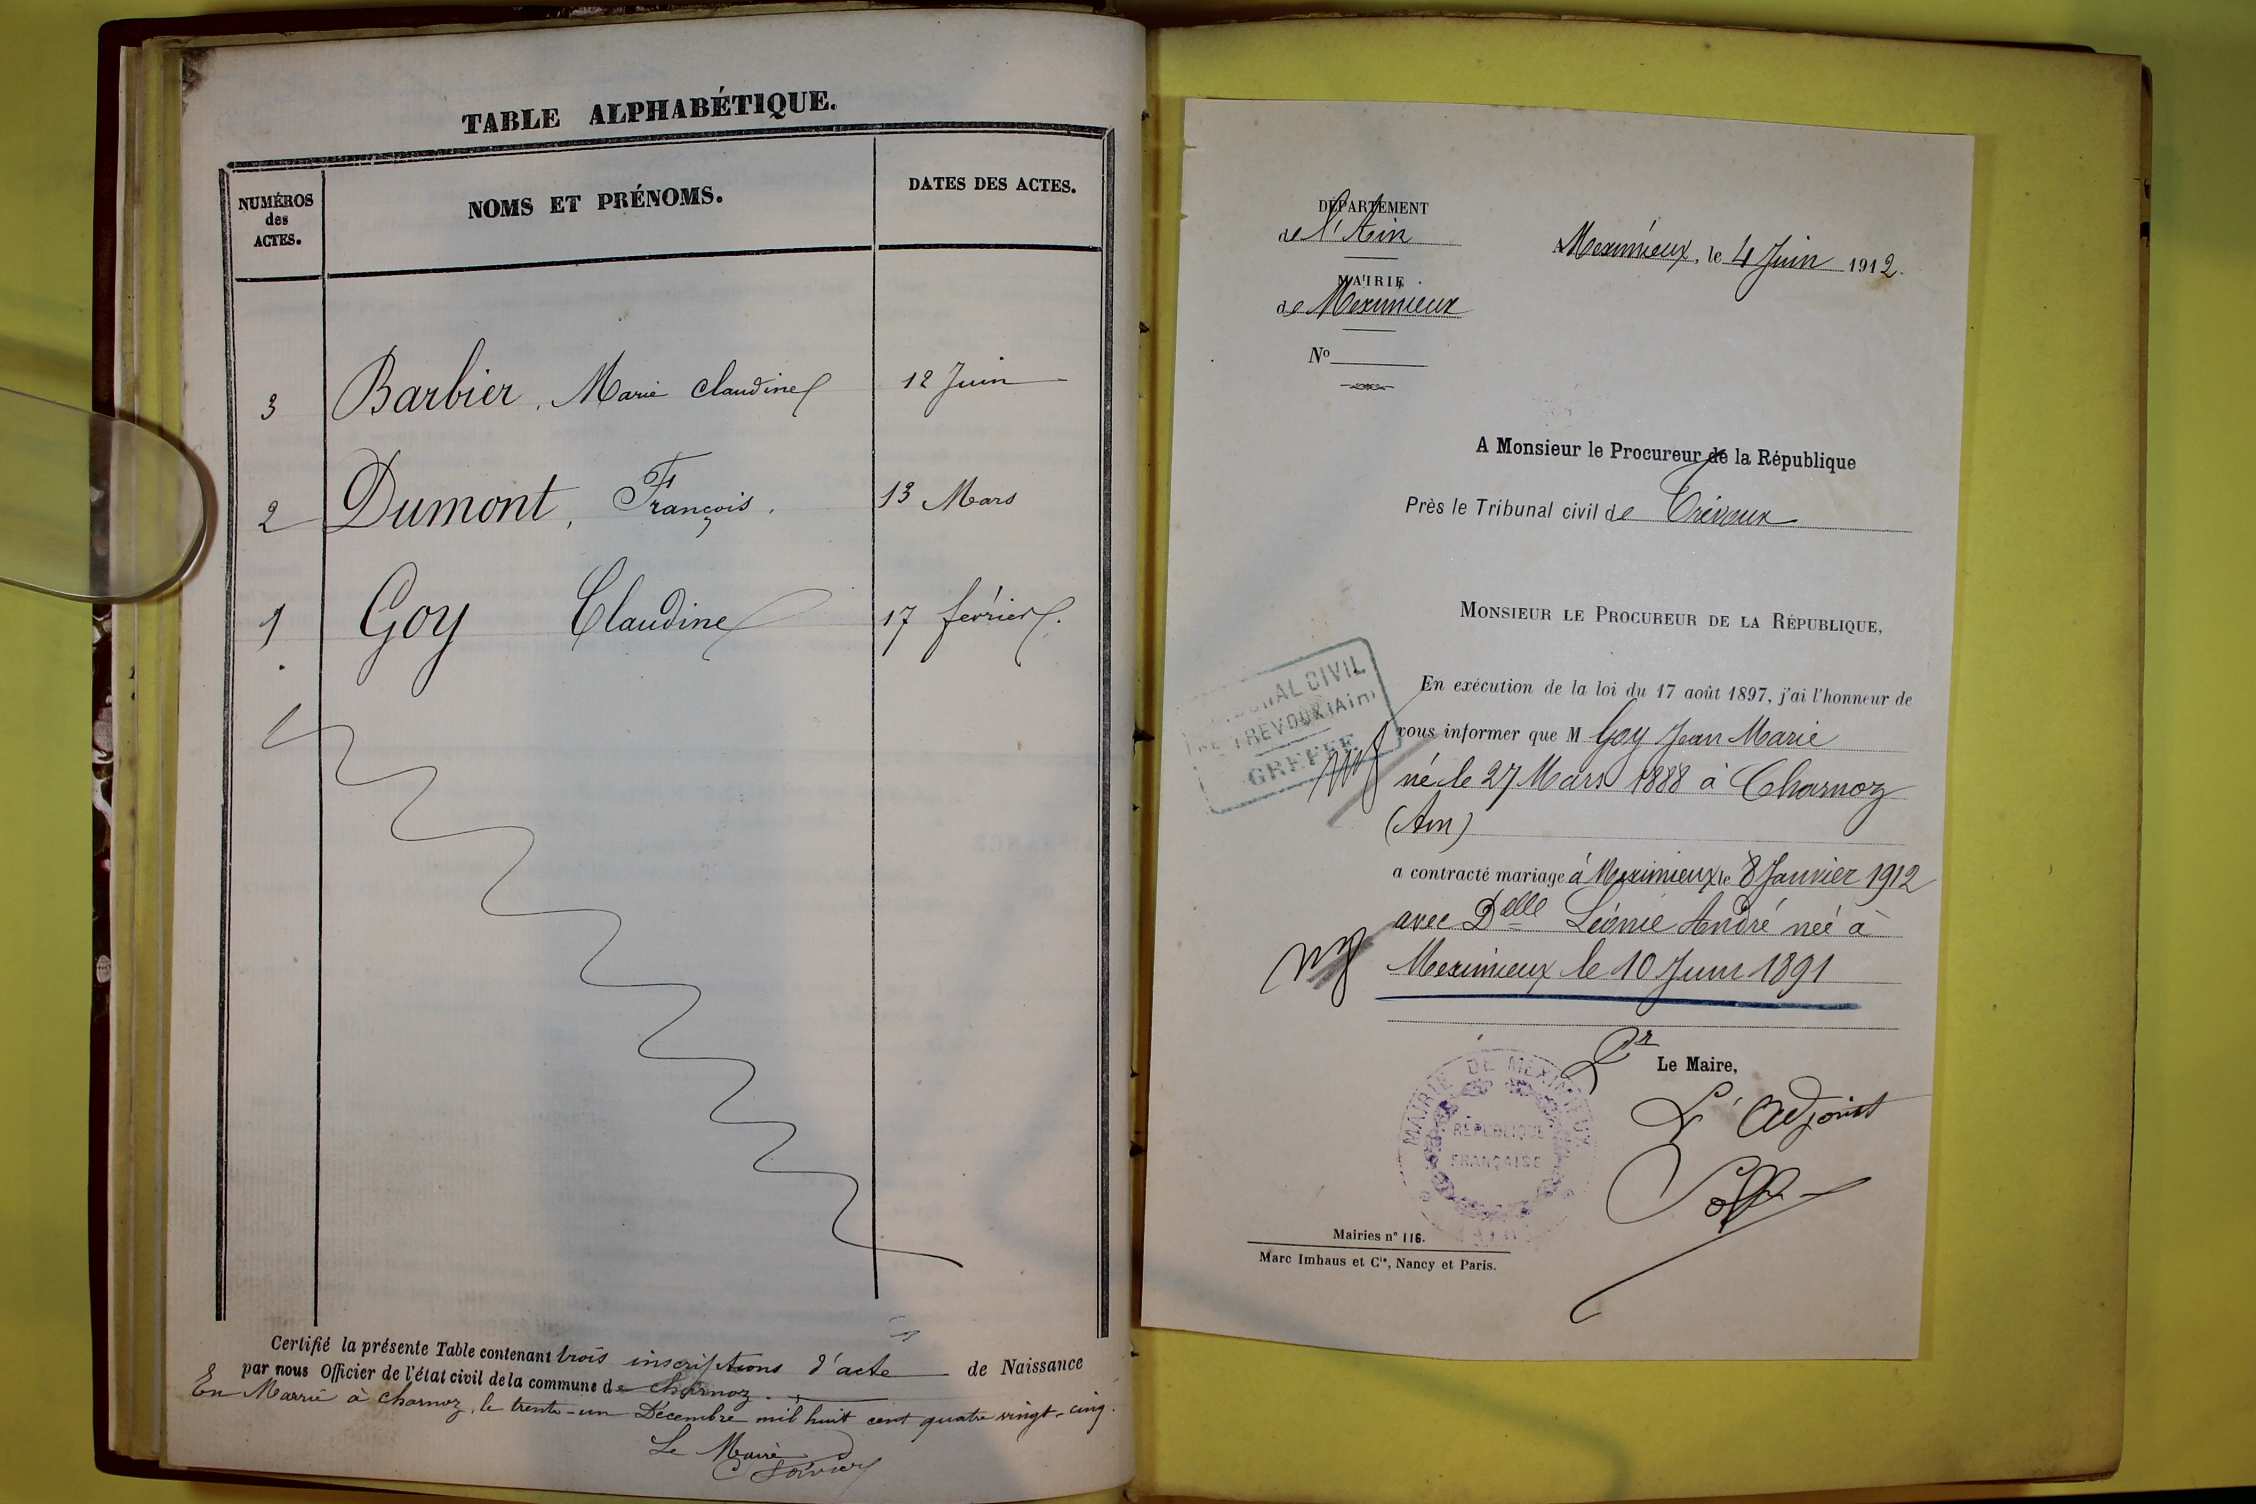 TABLE ALPHABÉTIQUE.
NUMÉROS
des
ACTES.
NOMS ET PRÉNOMS.
DATES DES ACTES.
3 Barbier, Marie Claudine 12 Juin
2 Dumont, François. 13 Mars
1 Goy Claudine 17 février.
Certifié la présente Table contenant trois inscriptions d'acte de Naissance
par nous Officier de l'état civil de la commune de charnoz.
En Mairie à charnoz, le trente-un Décembre mil huit cent quatre vingt-cinq.
Le Maire
DÉPARTEMENT
de l'Ain
MAIRIE
de Meximieux
No
A Meximieux, le 4 Juin 1912.
A Monsieur le Procureur de la République
Près le Tribunal civil de Trévoux
MONSIEUR LE PROCUREUR DE LA RÉPUBLIQUE,
TRIBUNAL CIVIL
DE TREVOUX (Ain)
GREFFE
En exécution de la loi du 17 août 1897, j'ai l'honneur de
vous informer que M Goy Jean Marie
né le 27 Mars 1888 à Charnoz
(Ain)
a contracté mariage à Meximieux le 8 Janvier 1912
avec Delle Léonie André née à
Meximieux le 10 Juin 1891
Pr Le Maire,
L'Adjoint
MAIRIE DE MEXIMIEUX
RÉPUBLIQUE
FRANÇAISE
Mairies n° 116.
Marc Imhaus et Cie, Nancy et Paris.